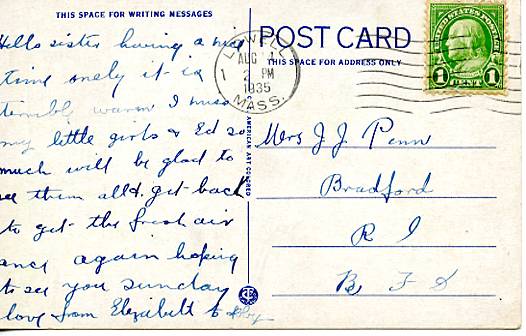 THIS SPACE FOR WRITING MESSAGES
Hello sister having a nice
time only it is
terribly warm I miss
my little girls & Ed so
much will be glad to
see them all & get back
to get the fresh air
once again hoping
to see you sunday
love from Elizabeth to
POST CARD
THIS SPACE FOR ADDRESS ONLY
LOWELL
AUG 1
2 PM
1935
MASS.
UNITED STATES POSTAGE
1 CENT 1
AMERICAN ART COLORED
Mrs J. J. Penn
Bradford
R I